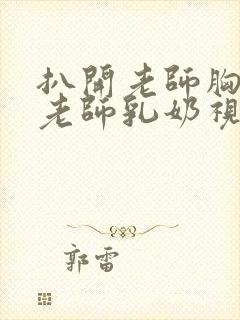 扒開老師胸
老師乳奶視
郭雷